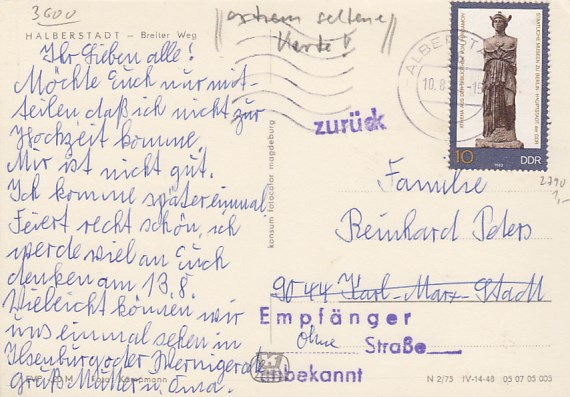 3600
HALBERSTADT – Breiter Weg
Ihr Lieben alle!
Möchte Euch nur mit-
teilen, daß ich nicht zur
Hochzeit komme.
Mir ist nicht gut.
Ich komme später einmal
Feiert recht schön, ich
werde viel an Euch
denken am 13.8.
Vielleicht können wir
uns einmal sehen in
Ilsenburg oder Wernigerode
Gruß Mutter u. Oma.
konsum fotocolor magdeburg
extrem seltene
Karte!
ALBERSTA
10.8
zurück
STAATLICHE MUSEEN ZU BERLIN · HAUPTSTADT DER DDR
10
DDR
2790
1,-
Familie
Reinhard Peters
9044 Karl-Marx-Stadt
Empfänger
ohne Straße
unbekannt
N 2/75 IV-14-48 05 07 05 005